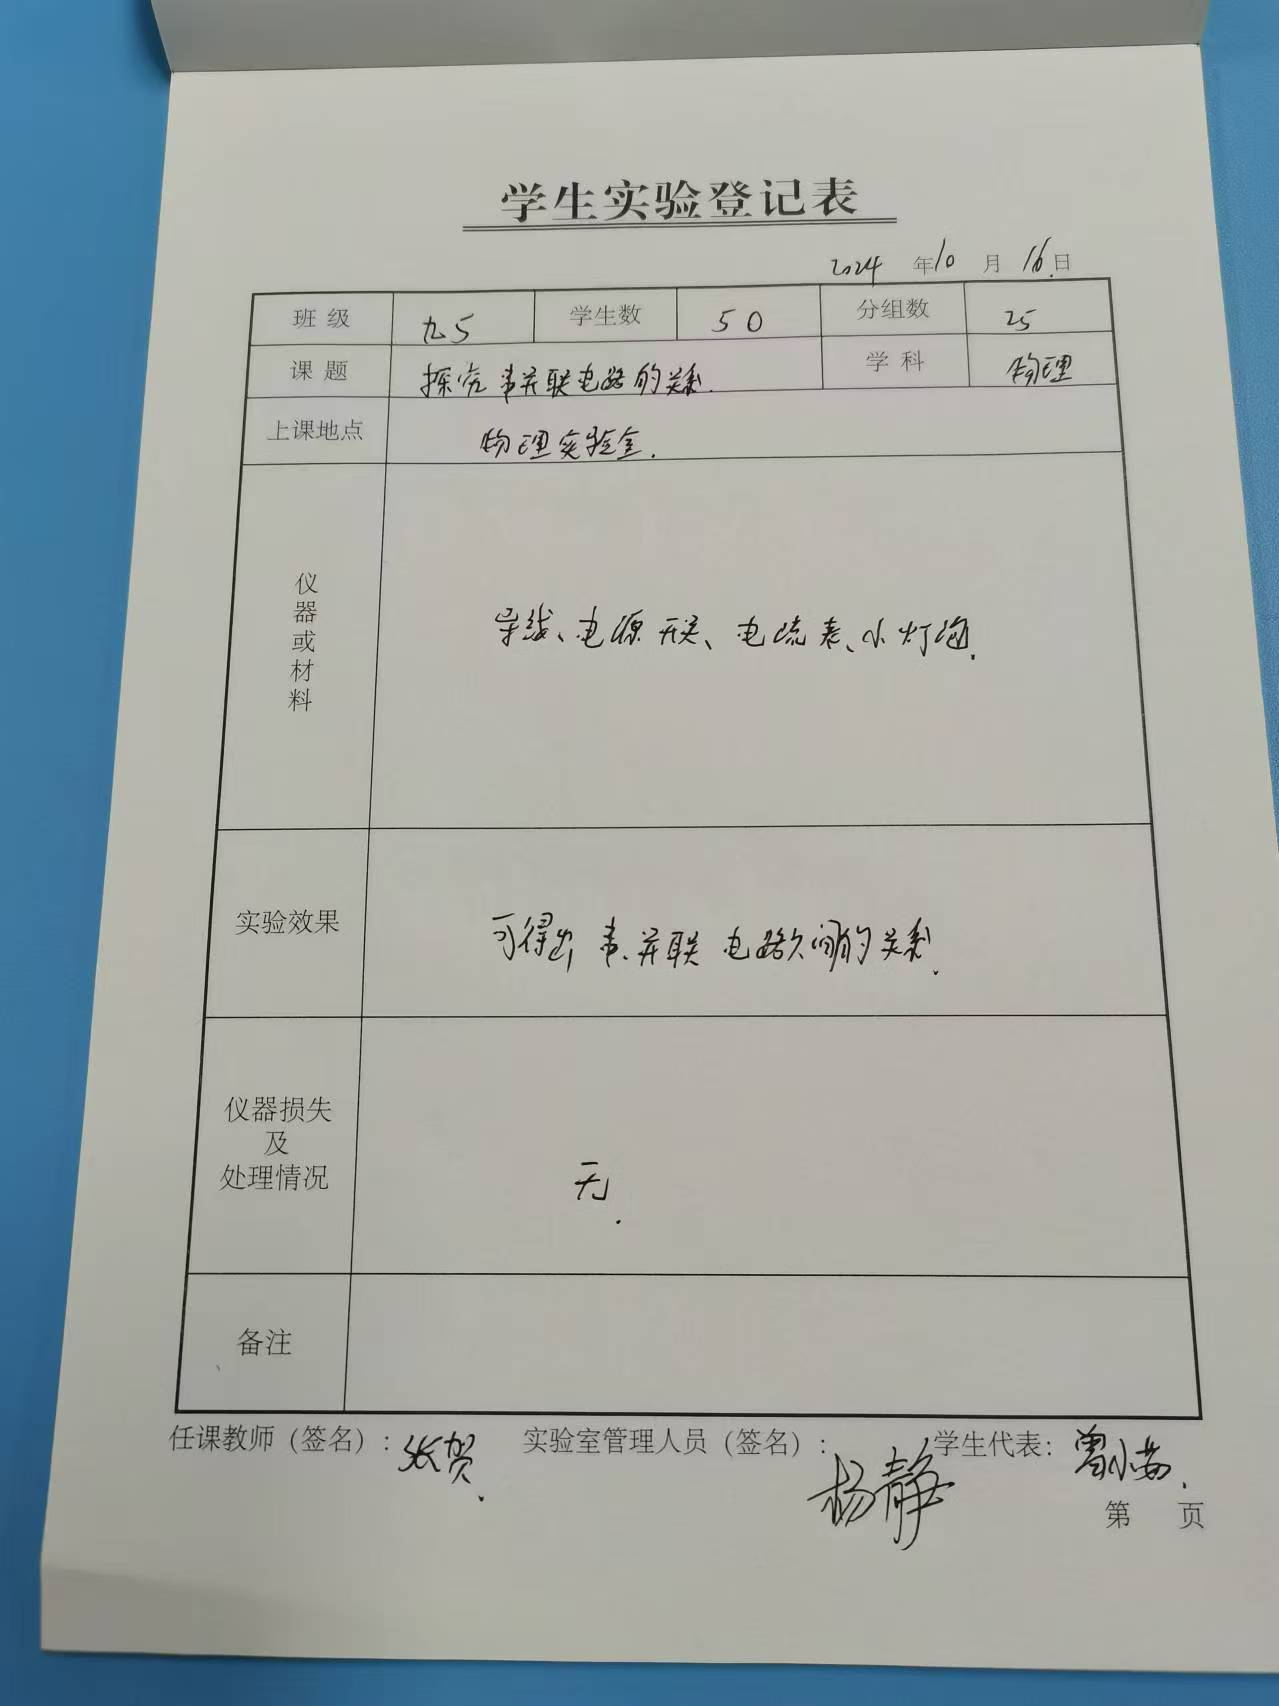 学生实验登记表
2024 年 10 月 16 日
班 级 九5 学生数 50 分组数 25
课 题 探究串并联电路的关系. 学 科 物理
上课地点 物理实验室.
仪器或材料 导线、电源 开关、电流表、小灯泡.
实验效果 可得出 串、并联 电路之间的关系.
仪器损失
及
处理情况 无.
备注
任课教师（签名）: 张贺. 实验室管理人员（签名）: 杨静 学生代表: 曾小
第 页